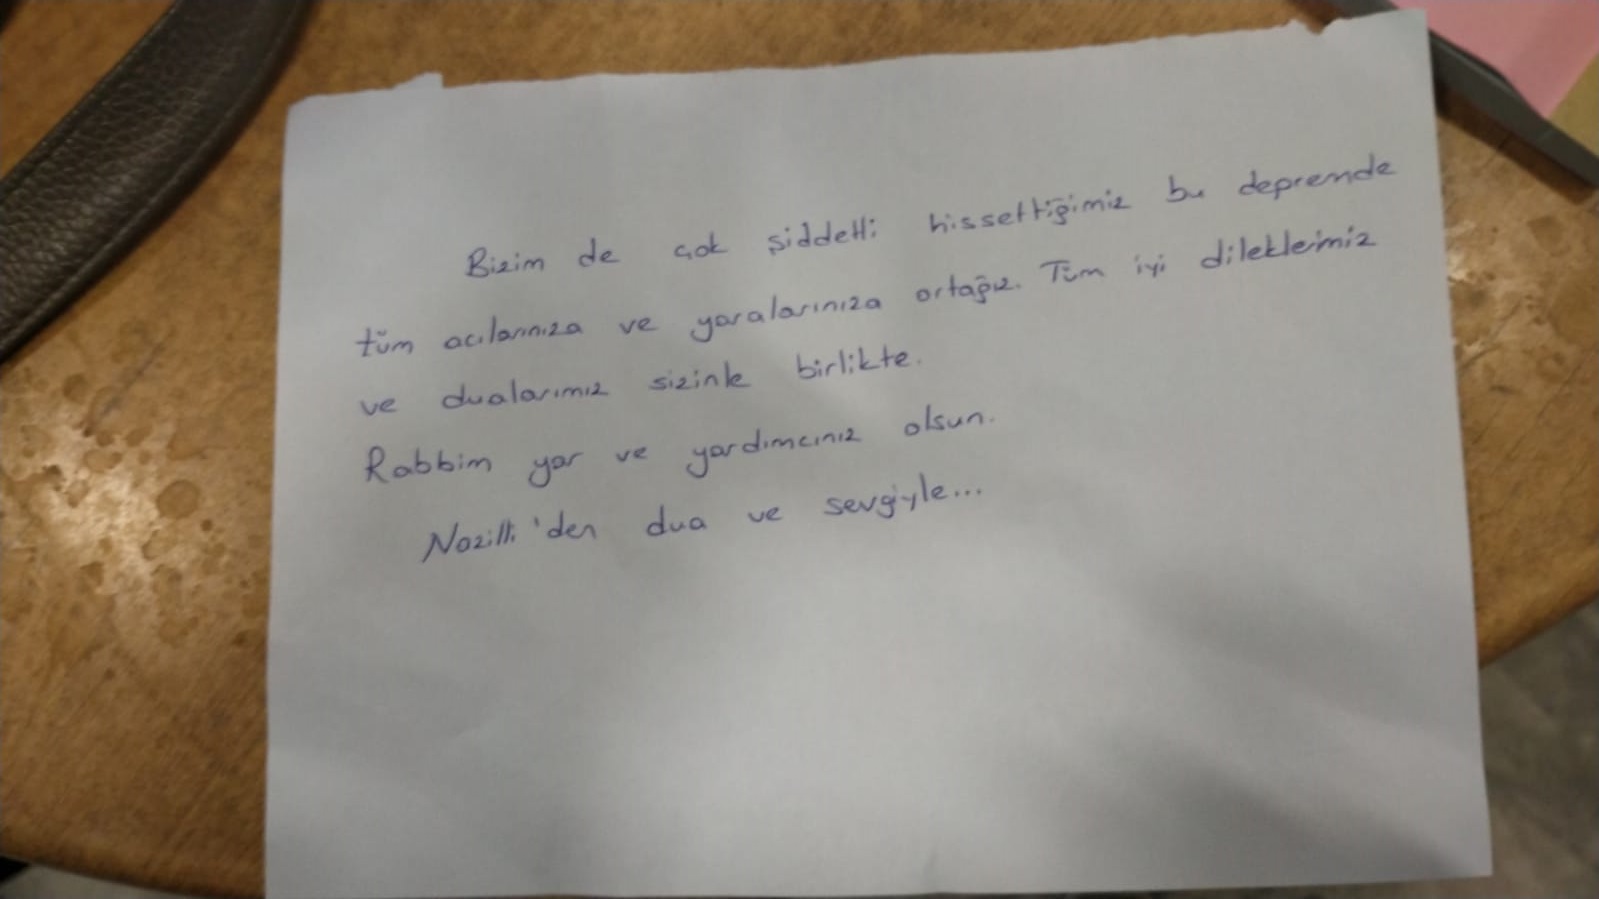 Bizim de çok şiddetli hissettiğimiz bu depremde
tüm acılarınıza ve yaralarınıza ortağız. Tüm iyi dileklerimiz
ve dualarımız sizinle birlikte.
Rabbim yar ve yardımcınız olsun.
Nazilli'den dua ve sevgiyle...